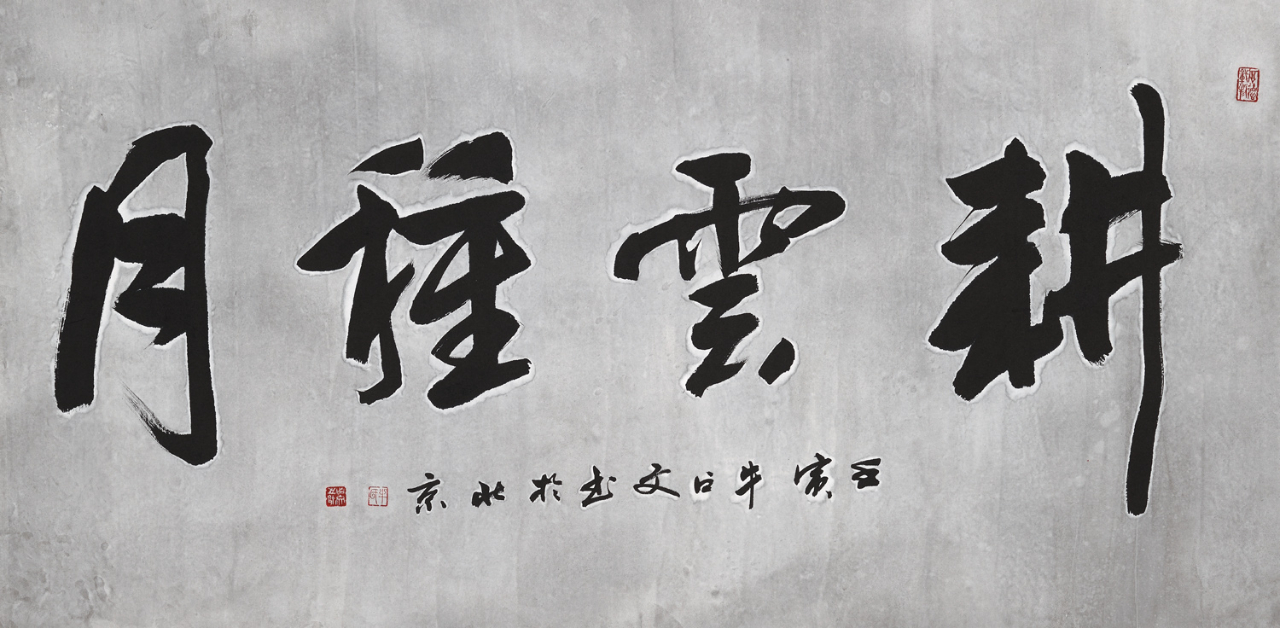 耕雲種月
壬寅牛文书於北京